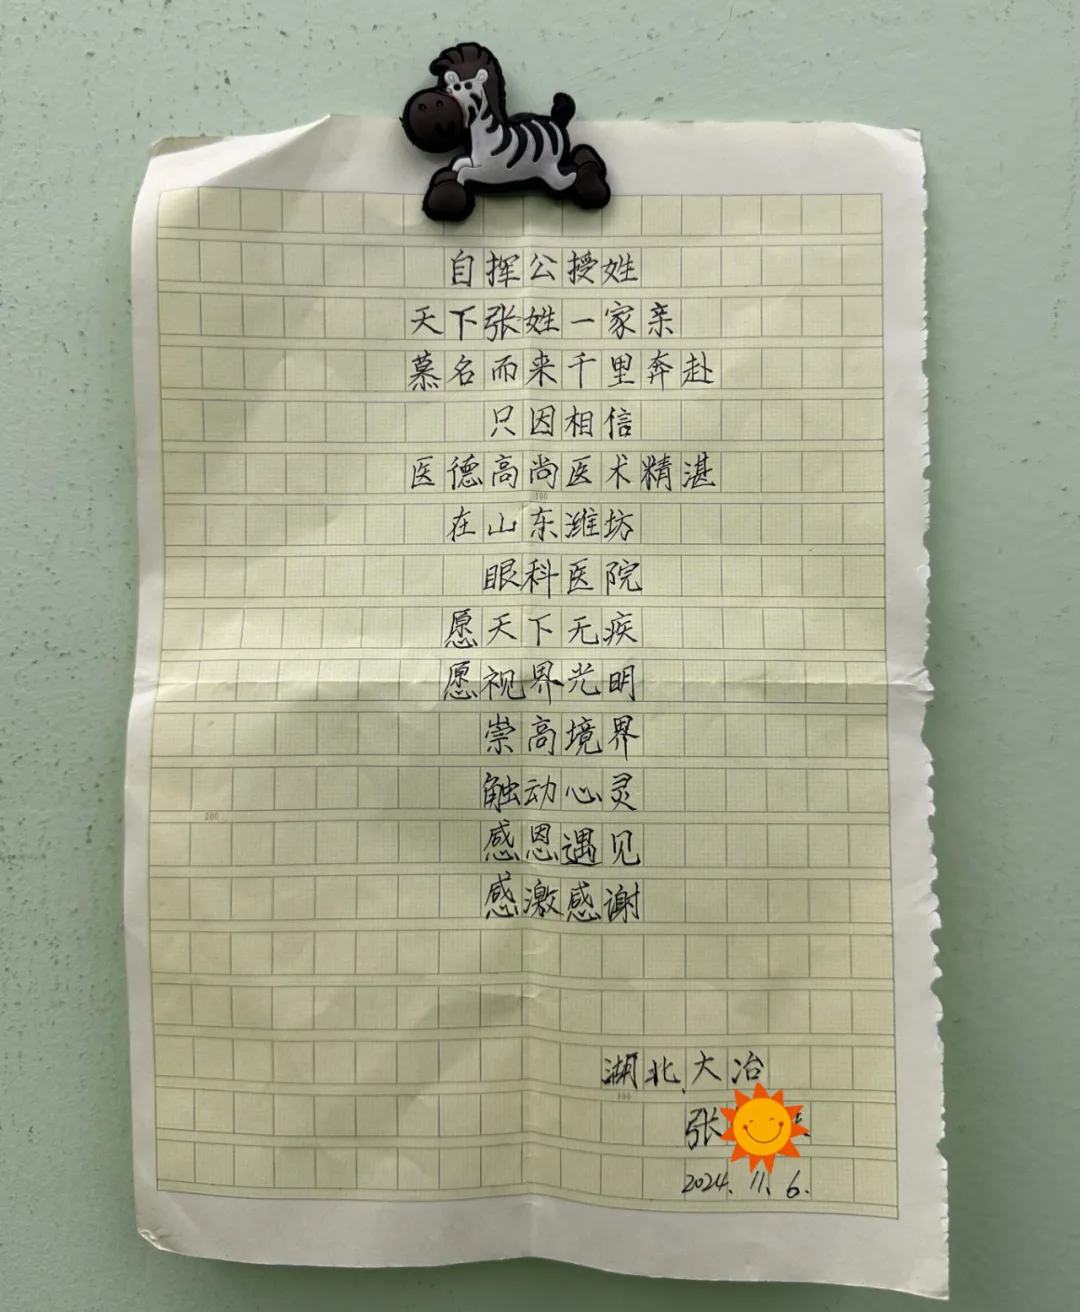 自挥公授姓
天下张姓一家亲
慕名而来千里奔赴
只因相信
医德高尚医术精湛
100
在山东潍坊
眼科医院
愿天下无疾
愿视界光明
崇高境界
触动心灵
200
感恩遇见
感激感谢
湖北大冶
300
张
2024.11.6.